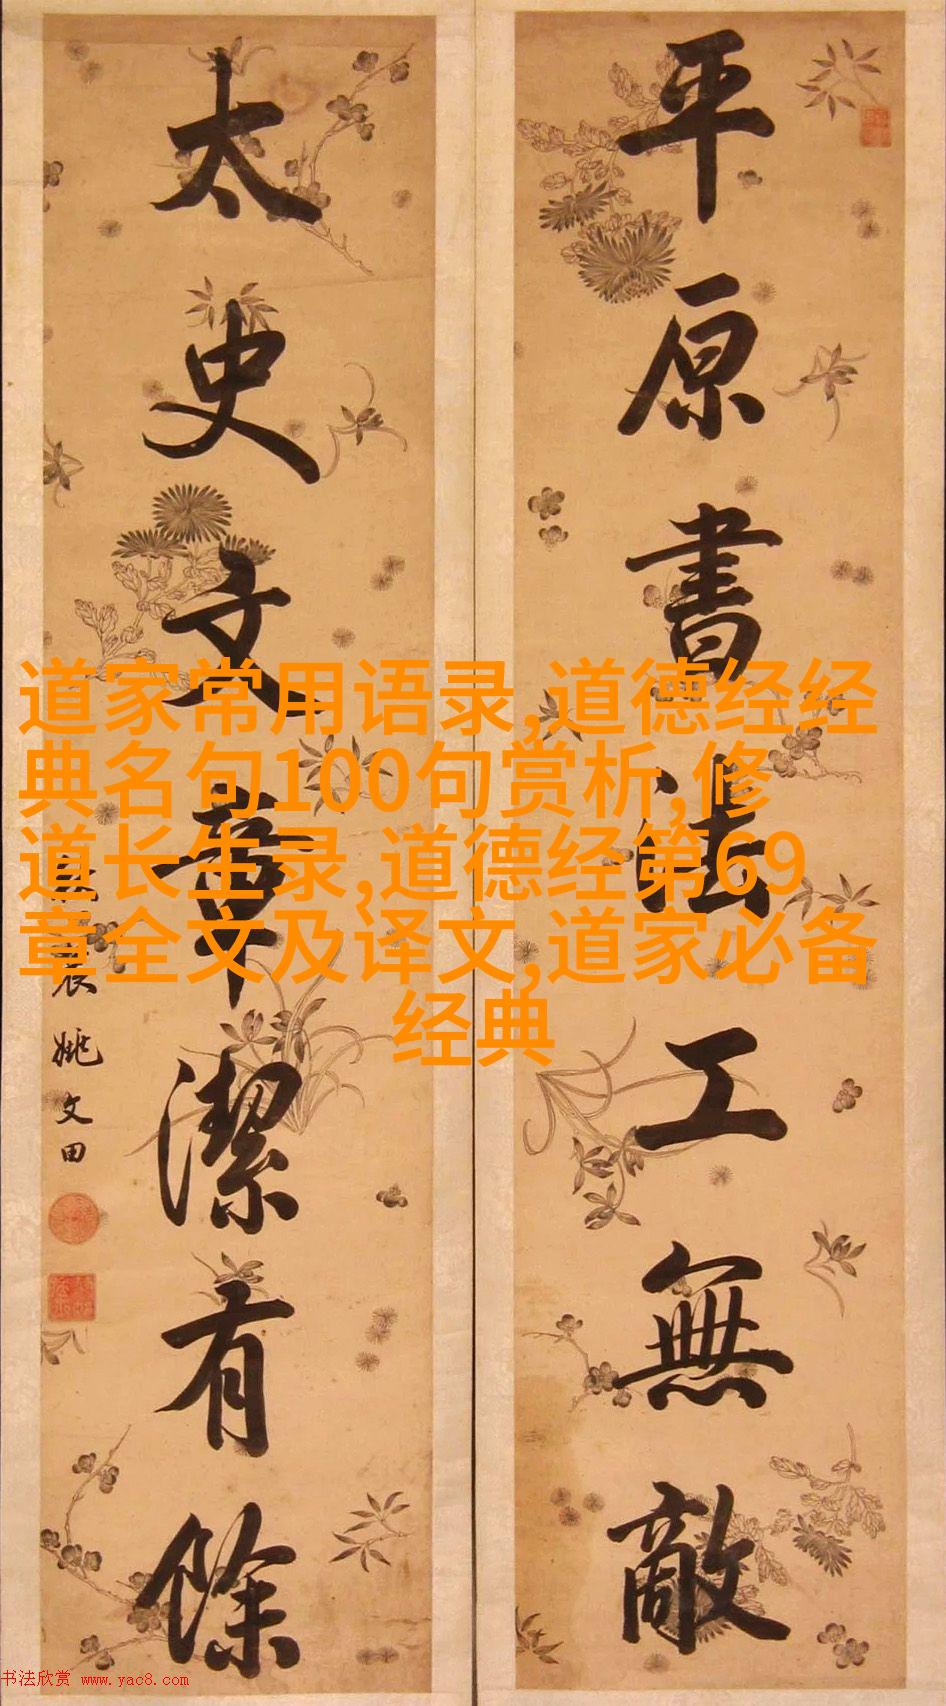 平原書法工無敵
太史文章潔有餘
姚文田
道家常用语录,道德经经
典名句100句赏析,修
道长生录,道德经第69
章全文及译文,道家必备
经典
书法欣赏 www.yac8.com